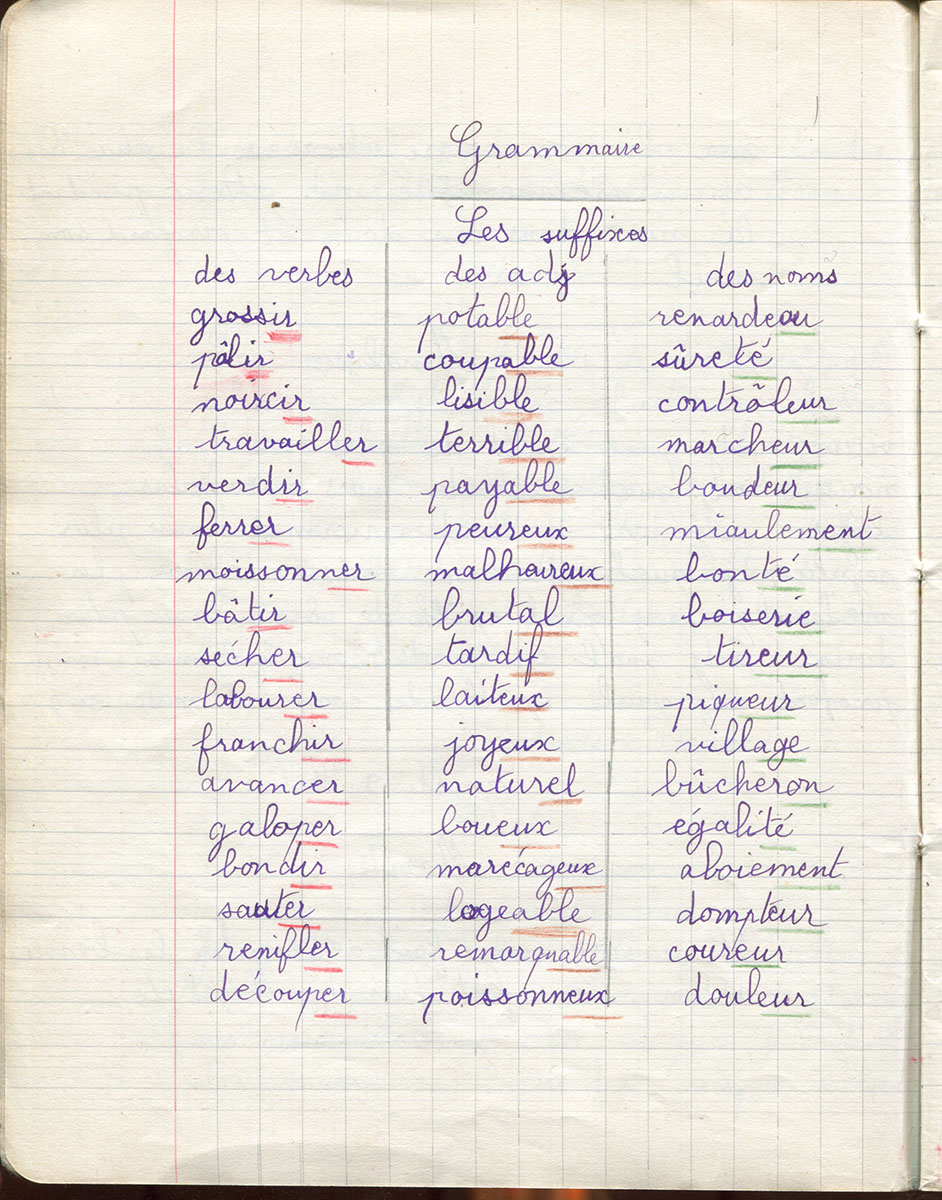 Grammaire
Les suffixes
des verbes des adj des noms
grossir potable renardeau
pâlir coupable sûreté
noircir lisible contrôleur
travailler terrible marcheur
verdir payable boudeur
ferrer peureux miaulement
moissonner malheureux bonté
bâtir brutal boiserie
sécher tardif tireur
labourer laiteux piqueur
franchir joyeux village
avancer naturel bûcheron
galoper boueux égalité
bondir marécageux aboiement
sauter logeable dompteur
renifler remarquable coureur
découper poissonneux douleur